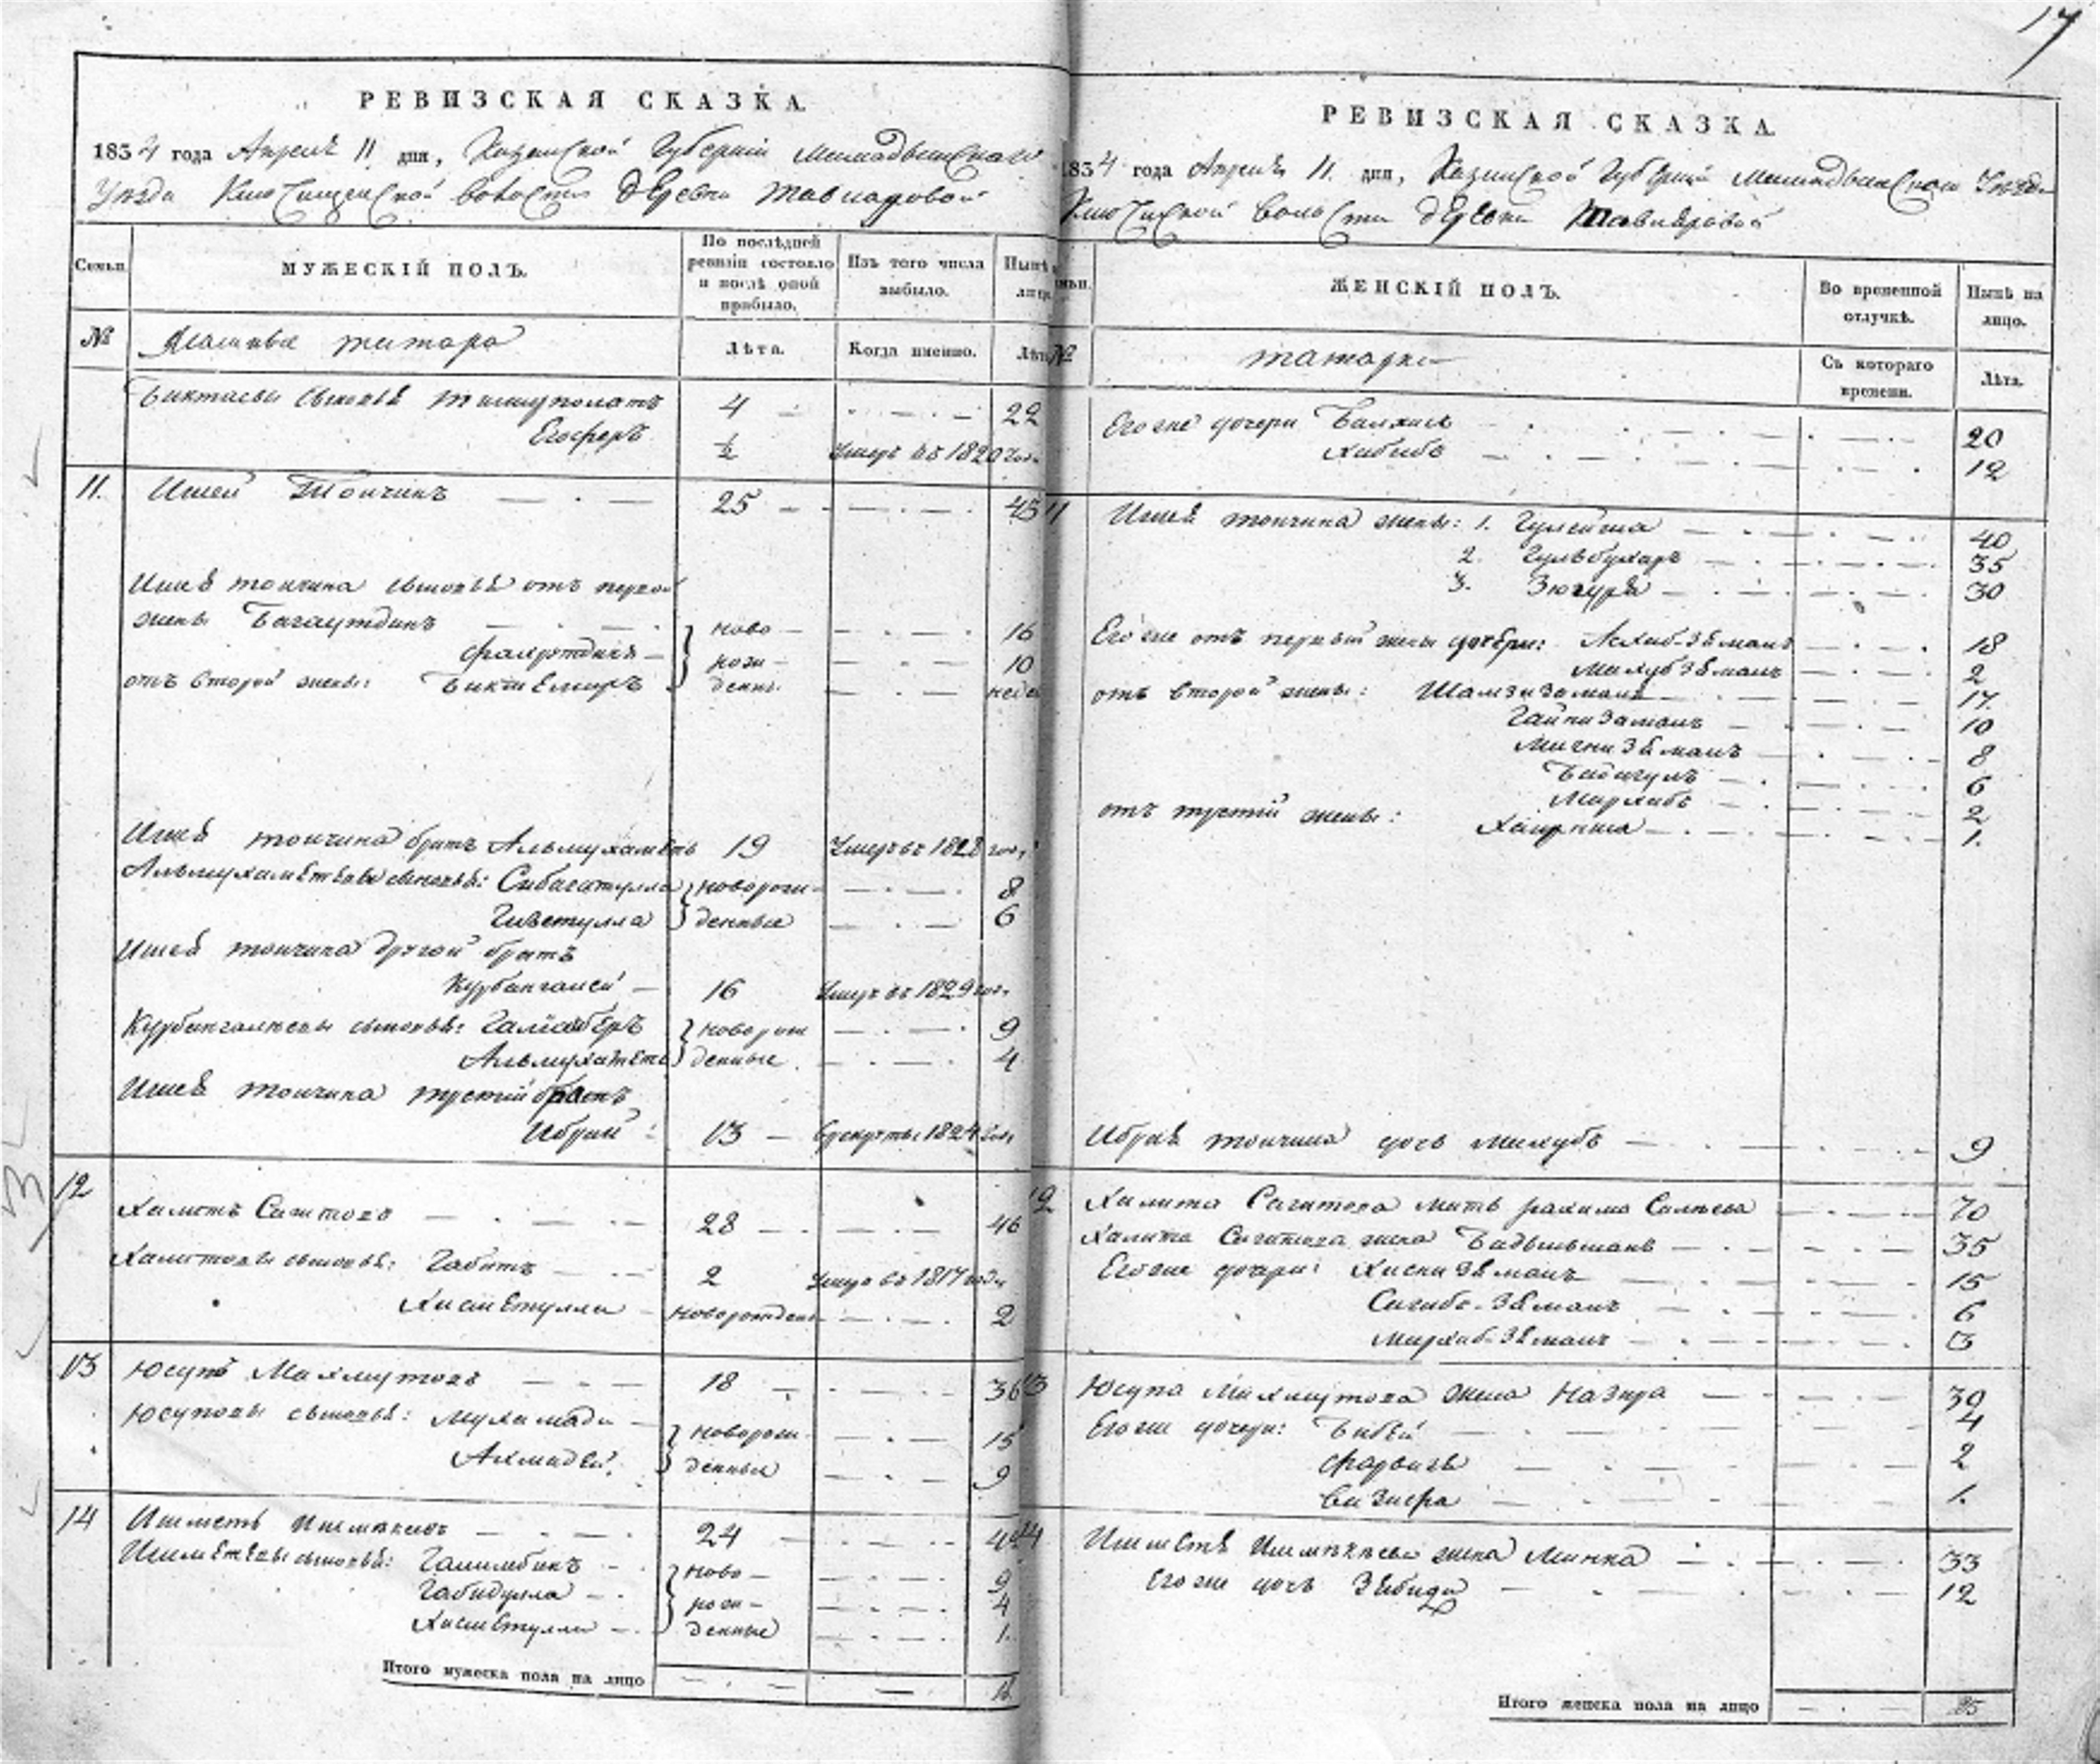 17
РЕВИЗСКАЯ СКАЗКА.
1834 года Апреля 11 дня, Казанской Губернии Мамадышскаго
Уезда Ключищенской волости деревни Тавларовой
Семьи. МУЖЕСКІЙ ПОЛЪ. По послѣдней ревизіи состояло и послѣ оной прибыло. Изъ того числа выбыло. Нынѣ на лицо.
№ Ясашные татара Лѣта. Когда именно. Лѣта
Биктаевы сыновья Тимиуполатъ 4 22
½ Умеръ въ 1820 годе
11. Ишей Тойчинъ 25 43
Ишея тойчина сыновья отъ первой
жены Багаутдинъ ново 16
Фахрутдинъ рож 10
отъ второй жены: Биктемиръ денн. недел
Ишея тойчина братъ Альмухаметъ 19 Умеръ въ 1828 году
Альмухаметевы сыновья: Сибагатулла новорож 8
Гизетулла денные 6
Ишея тойчина другой братъ
Курбангалей 16 Умеръ въ 1829 году
Курбангалеевы сыновья: новорож 9
Альмухаметъ денные 4
Ишея тойчина третий братъ
Ибрай 13 въ рекруты 1824 году
12 Халитъ Сагитовъ 28 46
Халитовы сыновья: Габитъ 2 Умеръ въ 1817 годе
Хисметулла новорожден 2
13 Юсупъ Махмутовъ 18 36
Юсуповы сыновья: Мухамади новорож 15
Ахмадей денные 9
14 Ишметъ 24 4
Ишметевы сыновья: Галимбикъ ново 9
Габидулла рож 4
Хисметулла денные 1.
Итого мужеска пола на лицо
РЕВИЗСКАЯ СКАЗКА.
1834 года Апреля 11. дня, Казанской Губерний Мамадышскаго Уезда
волости деревни Тавларовой
ЖЕНСКІЙ ПОЛЪ. Во временной отлучкѣ. Нынѣ на лицо.
№ татарки Съ котораго времени. Лѣта.
Его же дочери Балхиса 20
Хабибя 12
11 Ишея тойчина жены: 1. Гулейша 40
2. Гульбухаръ 35
3. Зюгуря 30
Его же отъ первый жены дочери: Асхаб-Земанъ 18
Махубземанъ 2
отъ второй жены: Шамзизаманъ 17.
Гайнизаманъ 10
Мигниземанъ 8
Бибигуль 6
Мархабе 2
отъ третий жены: 1.
Ибрая тойчина дочь Махубя 9
12 Халита Сагитова мать рахима Салеева 70
Халита Сагитова жена 35
Его же дочери: Хисниземанъ 15
Сагибе-Земанъ 6
Мархаб-Земанъ 3
13 Юсупа Махмутова жена Назира 30
Его же дочери: Бибей 4
2
1.
14 Ишметя жена Минка 33
Его же дочь Зебида 12
Итого женска пола на лицо 25